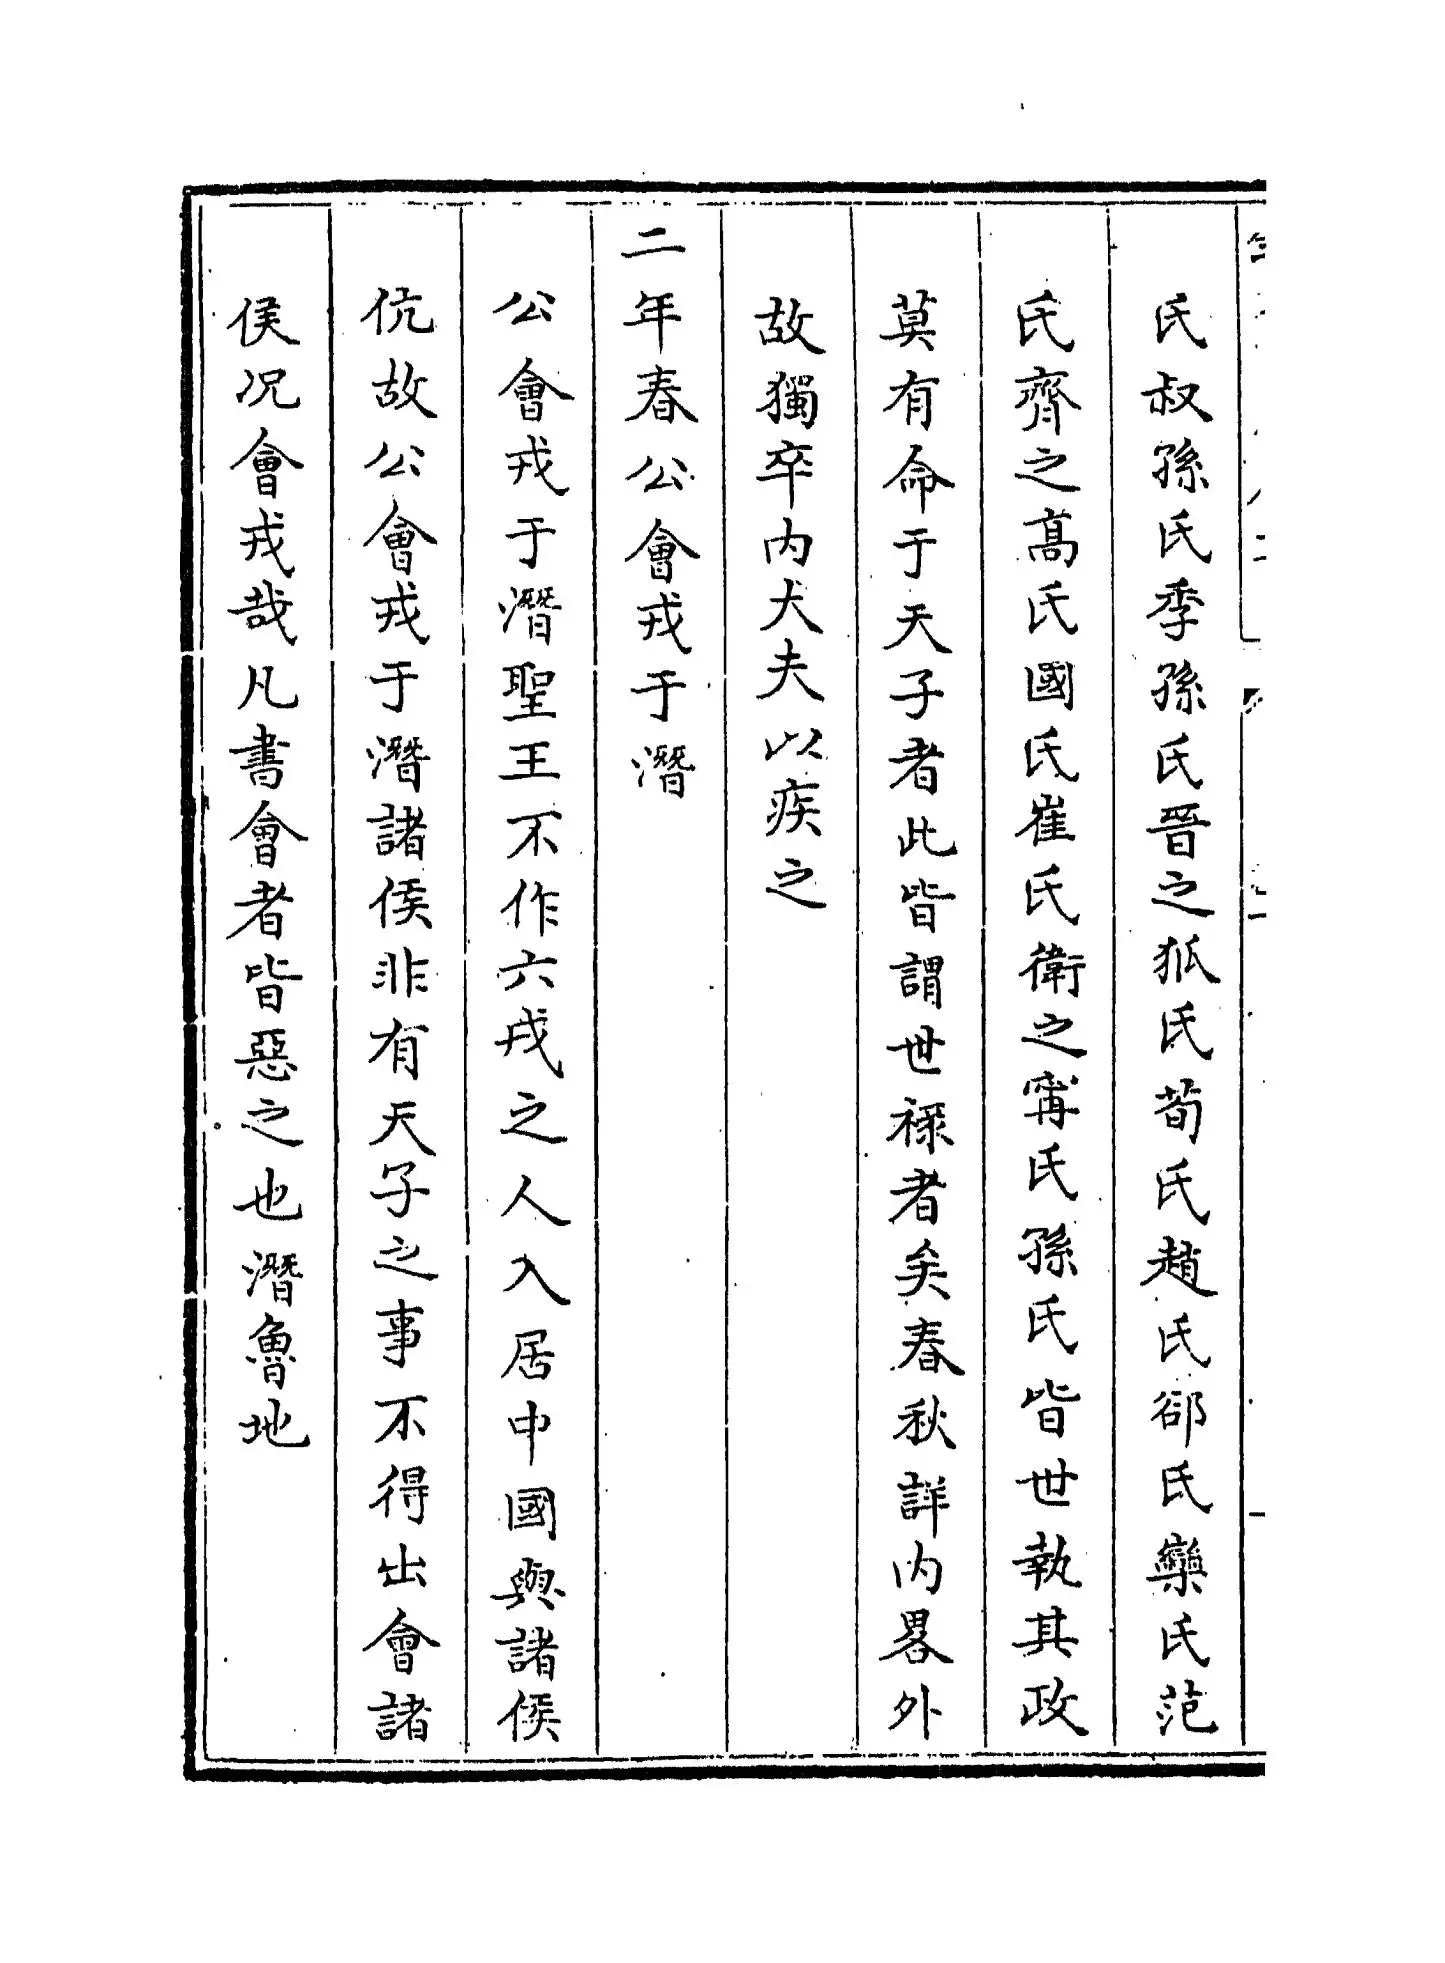 氏叔孫氏季孫氏晉之狐氏荀氏趙氏郤氏欒氏范
氏齊之髙氏國氏崔氏衛之甯氏孫氏皆世執其政
莫有命于天子者此皆謂世禄者矣春秋詳内畧外
故獨卒内大夫以疾之
二年春公會戎于潛
公會戎于潛聖王不作六戎之人入居中國與諸侯
伉故公會戎于潛諸侯非有天子之事不得出會諸
侯况會戎哉凡書會者皆惡之也潛魯地